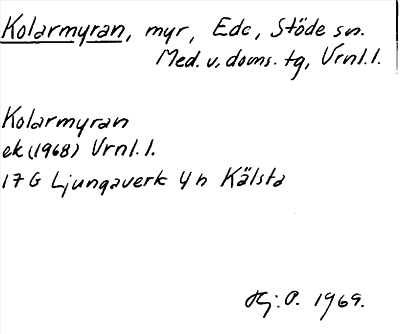 Kolarmyran, myr, Edc, Stöde sn.
Med. v. doms. tg, Vrnl. l.
Kolarmyran
ek (1968) Vrnl. l.
17 G Ljungaverk 4 h Kälsta
Hj: P. 1969.